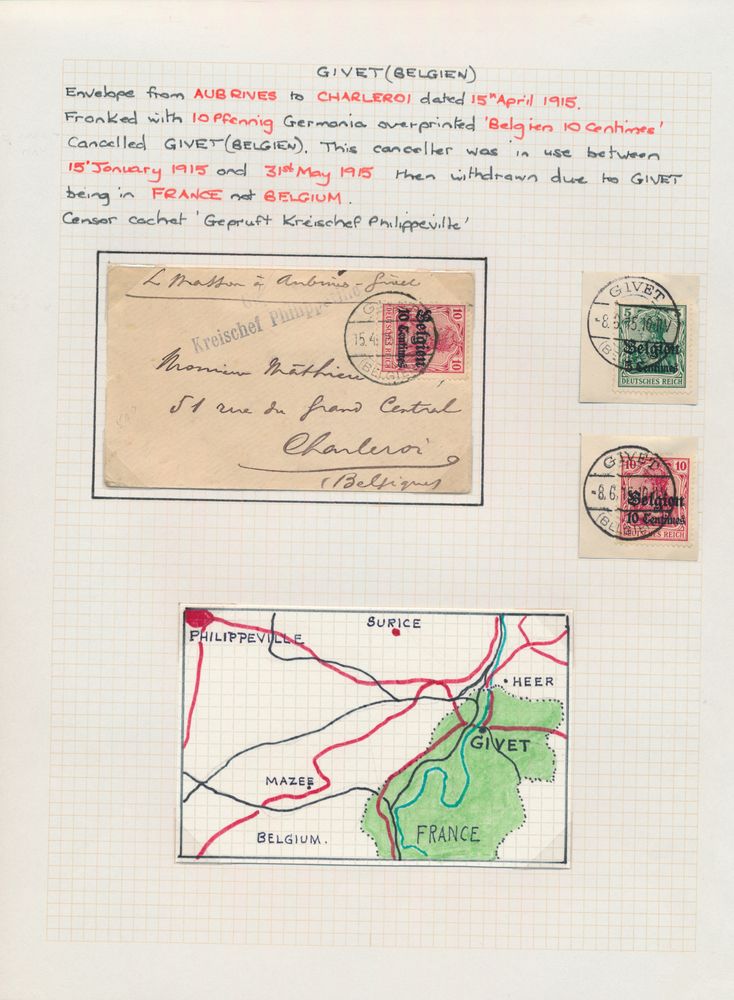 GIVET (BELGIEN)
Envelope from AUBRIVES to CHARLEROI dated 15th April 1915.
Franked with 10 Pfennig Germania overprinted 'Belgien 10 Centimes'
Cancelled GIVET (BELGIEN). This canceller was in use between
15th January 1915 and 31st May 1915 then withdrawn due to GIVET
being in FRANCE not BELGIUM.
Censor cachet 'Gepruft Kreischef Philippeville'
L Masson à Aubrives-Givet
Kreischef Philippeville
15.4
(BELGIEN)
10 10
Belgien
10 Centimes
DEUTSCHES REICH
Monsieur Mathieu
51 rue du Grand Central
Charleroi
(Belgique)
GIVET
-8.6.15.10
(BE
5
Belgien
5 Centimes
DEUTSCHES REICH
GIVET
-8.6.15
(BELGIEN
10 10
Belgien
10 Centimes
REICH
PHILIPPEVILLE
SURICE
HEER
GIVET
MAZEE
BELGIUM.
FRANCE